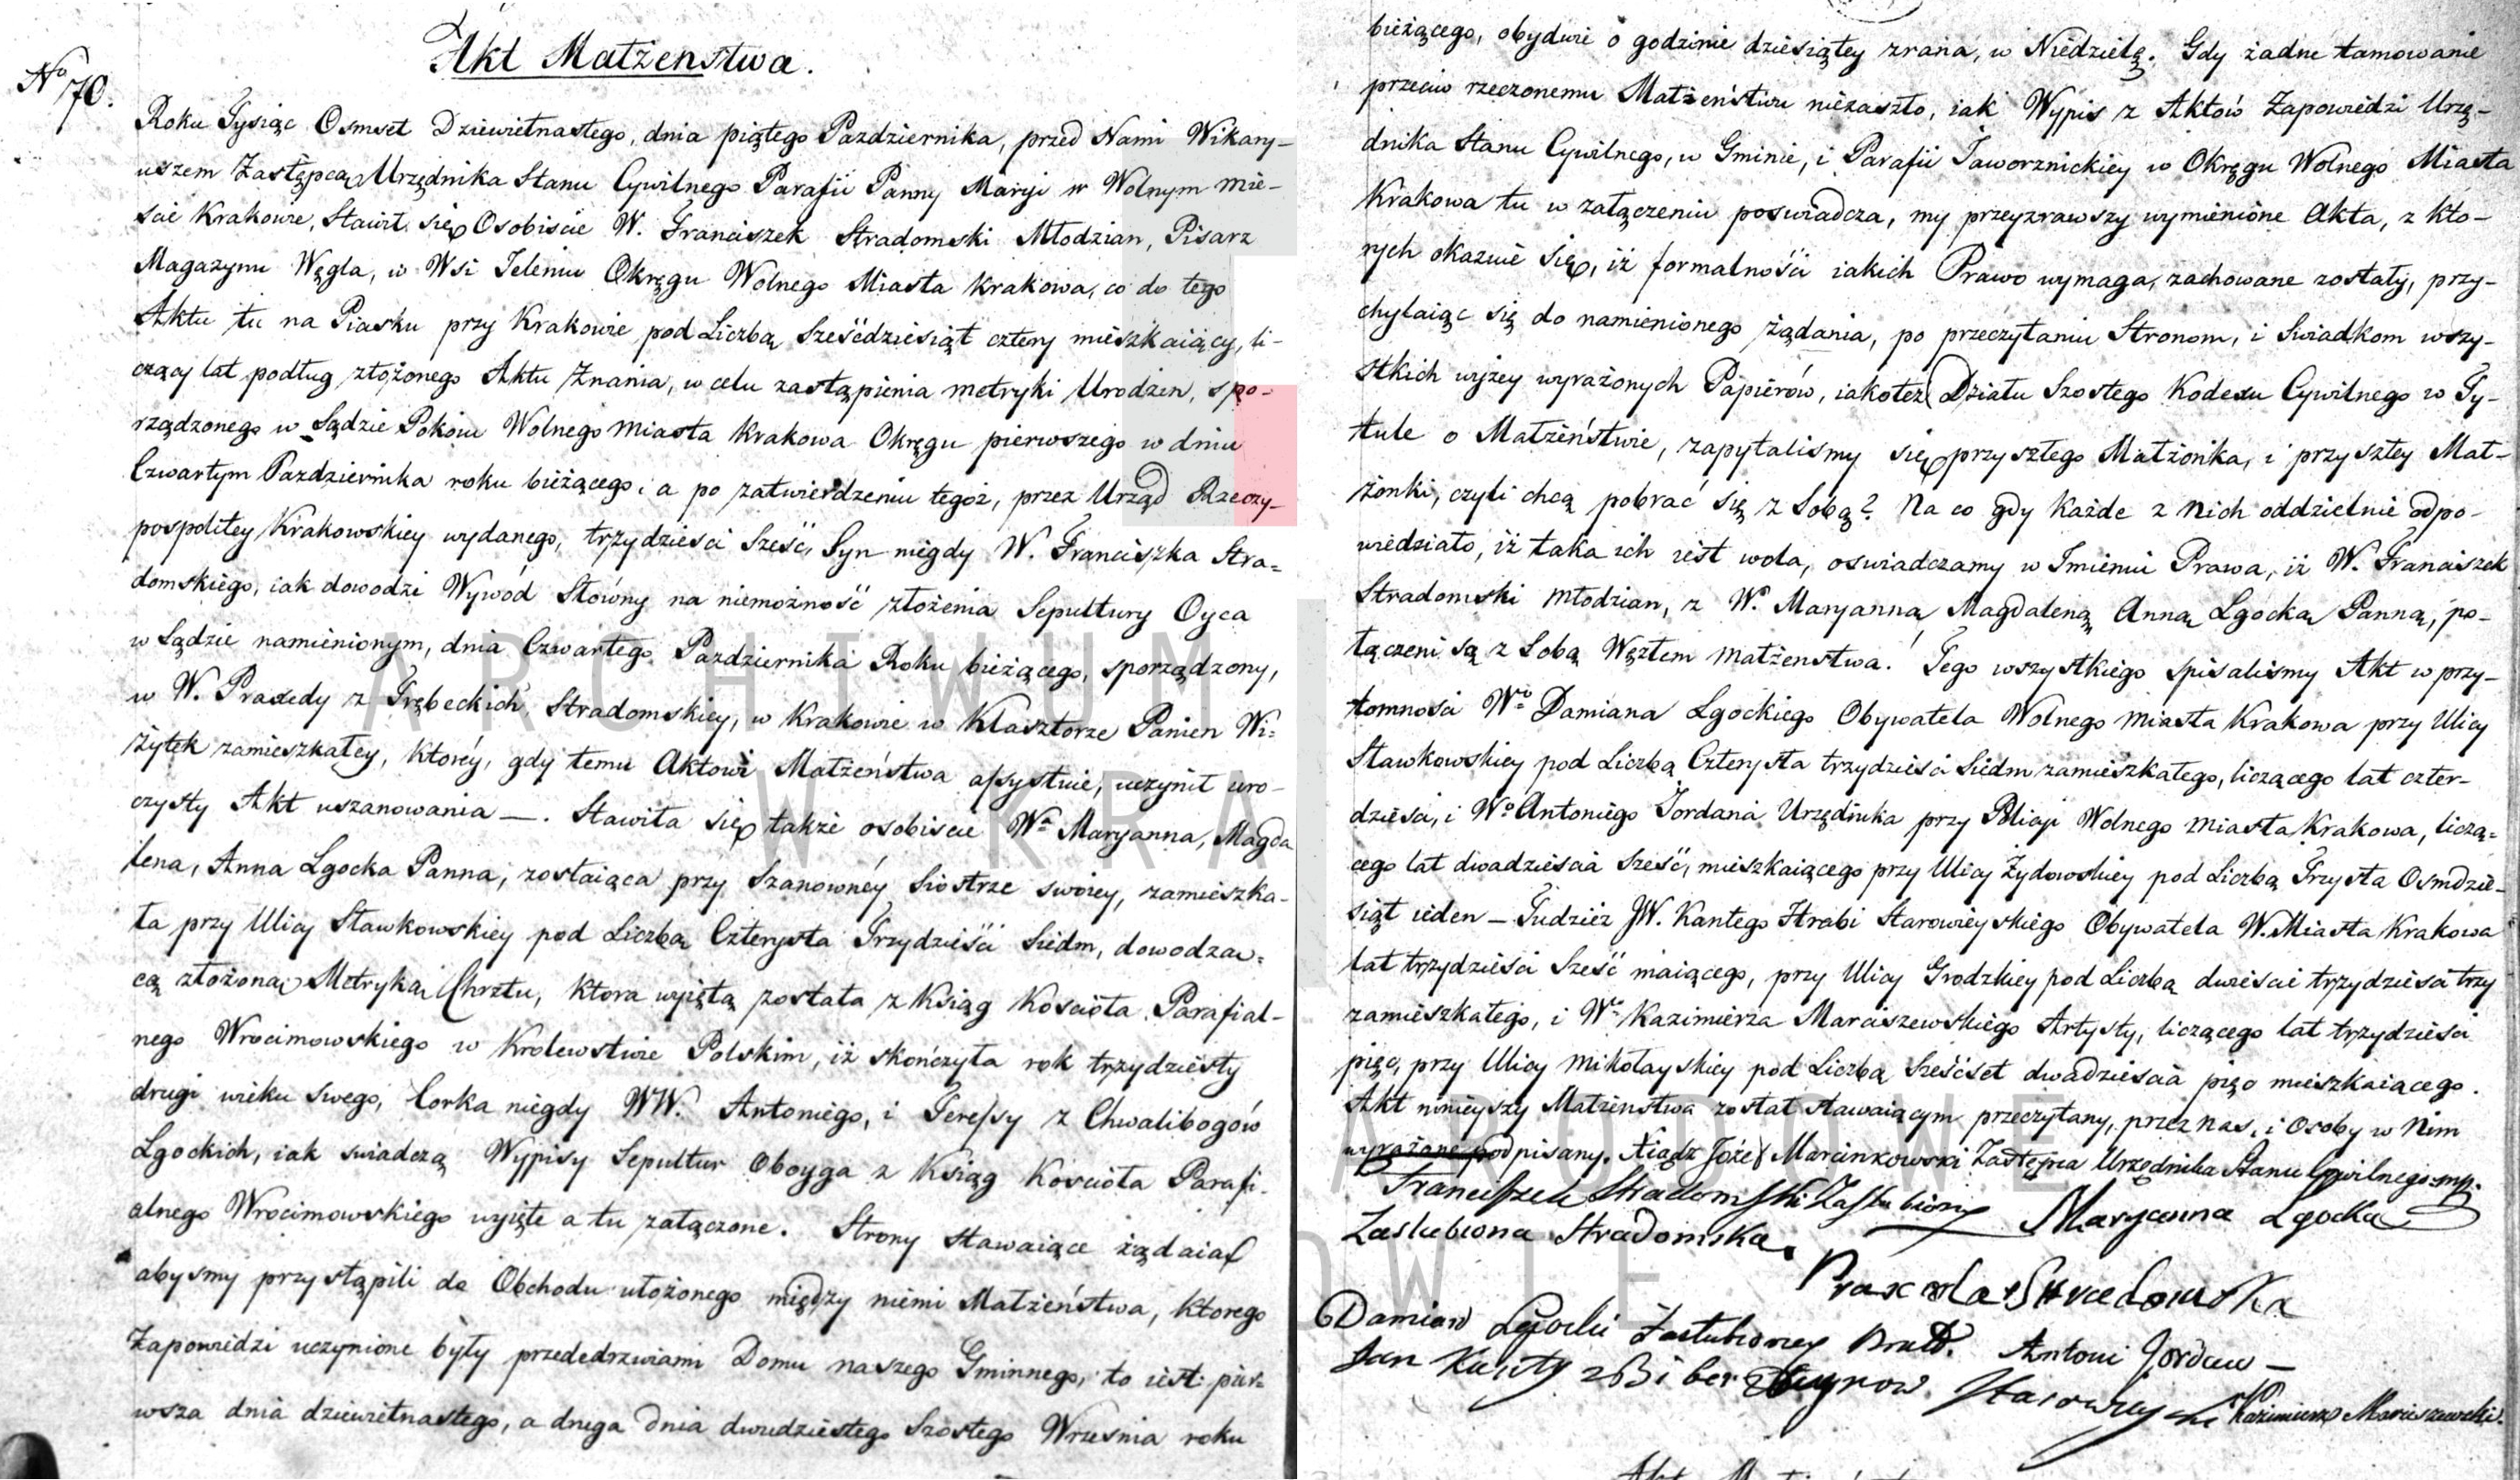 Akt Małżenstwa.
No 70.
Roku Tysiąc Osmset Dziewiętnastego, dnia piątego Pazdziernika, przed Nami Wikary-
uszem Zastępcą Urzędnika Stanu Cywilnego Parafii Panny Maryi w Wolnym mie-
scie Krakowie, Stawił się Osobiscie W. Franciszek Stradomski Młodzian, Pisarz
Magazynu Węgla, w Wsi Jeleniu Okręgu Wolnego Miasta Krakowa, co do tego
Aktu tu na Piasku przy Krakowie pod Liczbą Sześćdziesiąt cztery mieszkaiący, li-
czący lat podług złożonego Aktu Znania, w celu zastąpienia metryki Urodzen, spo-
rządzonego w Sądzie Pokoiu Wolnego Miasta Krakowa Okręgu pierwszego w dniu
Czwartym Pazdziernika roku bieżącego, a po zatwierdzeniu tegoż, przez Urząd Rzeczy-
pospolitey Krakowskiey wydanego, trzydziesci Sześć, Syn niegdy W. Franciszka Stra-
domskiego, iak dowodzi Wywód Słówny na niemożność złożenia Sepultury Oyca
w Sądzie namienionym, dnia Czwartego Pazdziernika Roku bieżącego, sporządzony,
w W. Praxedy z Trębeckich, Stradomskiey, w Krakowie w Klasztorze Panien Wi-
zytek zamieszkałey, którey, gdy temu Aktowi Małżeństwa assystuie, uczynił uro-
czysty Akt uszanowania —. Stawiła się także osobiscie Wa Maryanna, Magda
lena, Anna Lgocka Panna, zostaiąca przy Szanownéy Siostrze swoiey, zamieszka-
ła przy Ulicy Sławkowskiey pod Liczbą Czterysta Trzydzieści Siedm, dowodzą-
cą złożoną Metryką Chrztu, ktora wyiętą została z Ksiąg Kościoła Parafial-
nego Wrocimowskiego w Krolewstwie Polskim, iż skończyła rok trzydziesty
drugi wieku swego, Corka niegdy WW. Antoniego, i Teressy z Chwalibogów
Lgockich, iak swiadczą Wypisy Sepultur Oboyga z Ksiąg Kościoła Parafi-
alnego Wrocimowskiego wyięte a tu załączone. Strony stawaiące żądaiąc
abysmy przystąpili do Obchodu ułożonego między niemi Małżeństwa, ktorego
Zapowiedzi uczynione były przededrzwiami Domu naszego Gminnego, to iest: pier-
wsza dnia dziewiętnastego, a druga dnia dwudziestego Szostego Wrzesnia roku
bieżącego, obydwie o godzinie dziesiątey zrana, w Niedzielę. Gdy żadne tamowanie
przeciw rzeczonemu Małżeństwu niezaszło, iak Wypis z Aktów Zapowiedzi Urzę-
dnika Stanu Cywilnego, w Gminie, i Parafii Jaworznickiey w Okręgu Wolnego Miasta
Krakowa tu w załączeniu poswiadcza, my przeyzrawszy wymienione Akta, z kto-
rych okazuie się, iż formalności iakich Prawo wymaga, zachowane zostały, przy-
chylaiąc się do namienionego żądania, po przeczytaniu Stronom, i Swiadkom wszy-
stkich wyżey wyrażonych Papierów, iakoteż Działu Szostego Kodexu Cywilnego w Ty-
tule o Małżeństwie, zapytalismy się przyszłego Małżonka, i przyszłey Mał-
żonki, czyli chcą pobrać się z Sobą? Na co gdy każde z nich oddzielnie odpo-
wiedziało, iż taka ich iest wola, oswiadczamy w Imieniu Prawa, iż W. Franciszek
Stradomski Młodzian, z Wa Maryanną Magdaleną Anną Lgocką Panną, po-
łączeni są z Sobą Węzłem Małżenstwa. Tego wszystkiego spisalismy Akt w przy-
tomnosci Wo Damiana Lgockiego Obywatela Wolnego Miasta Krakowa przy Ulicy
Sławkowskiey pod Liczbą Czterysta trzydziesci Siedm zamieszkałego, liczącego lat czter-
dziesci, i Wo Antoniego Jordana Urzędnika przy Policyi Wolnego Miasta Krakowa, liczą-
cego lat dwadziescia sześć, mieszkaiącego przy Ulicy Żydowskiey pod Liczbą Trzysta Osmdzie-
siąt ieden — Tudzież JW. Kantego Hrabi Starowieyskiego Obywatela W. Miasta Krakowa
lat trzydziesci Sześć maiącego, przy Ulicy Grodzkiey pod Liczbą dwiescie trzydziesci trzy
zamieszkałego, i Wo Kazimierza Marciszewskiego Artysty, liczącego lat trzydziesci
pięć, przy Ulicy Mikołayskiey pod Liczbą Sześćset dwadziescia pięć mieszkaiącego.
Akt ninieyszy Małżenstwa został stawaiącym przeczytany, przez nas, i Osoby w nim
wyrażone podpisany. Xiądz Józef Marcinkowski Zastępca Urzędnika Stanu Cywilnego mp.
Franciszek Stradomski Zaslubiony Maryanna Lgocka
Zaslubiona Stradomska.
Praxeda Stradomska
Damian Lgocki Zaslubioney Brat. Antoni Jordan —
Jan Kanty z Biberstynow Starowieyski Kazimierz Marciszewski.
ARCHIWUM
NARODOWE
W KRAKOWIE